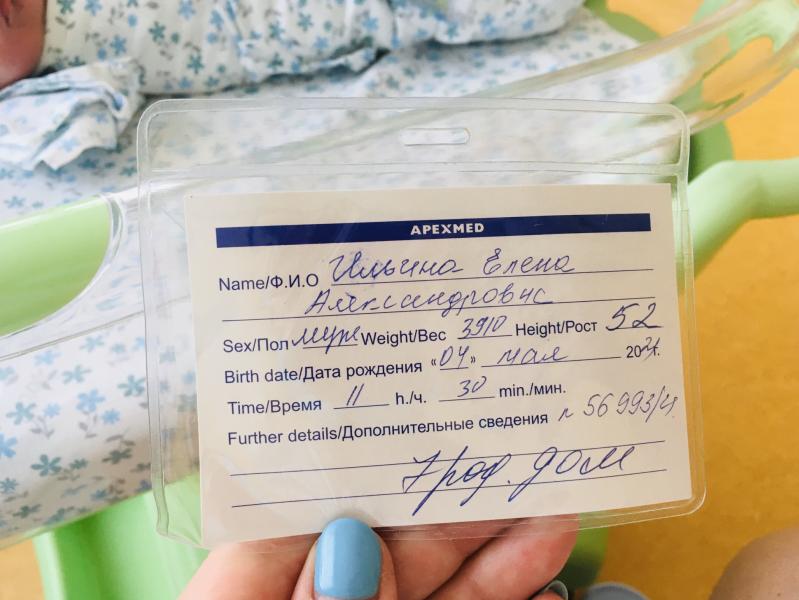 APEXMED
Name/Ф.И.О Ильина Елена
Александровис
Sex/Пол муж Weight/Вес 3910 Height/Рост 52
Birth date/Дата рождения «04» мая 2021г.
Time/Время 11 h./ч. 30 min./мин.
Further details/Дополнительные сведения 56993/4
7 род. дом